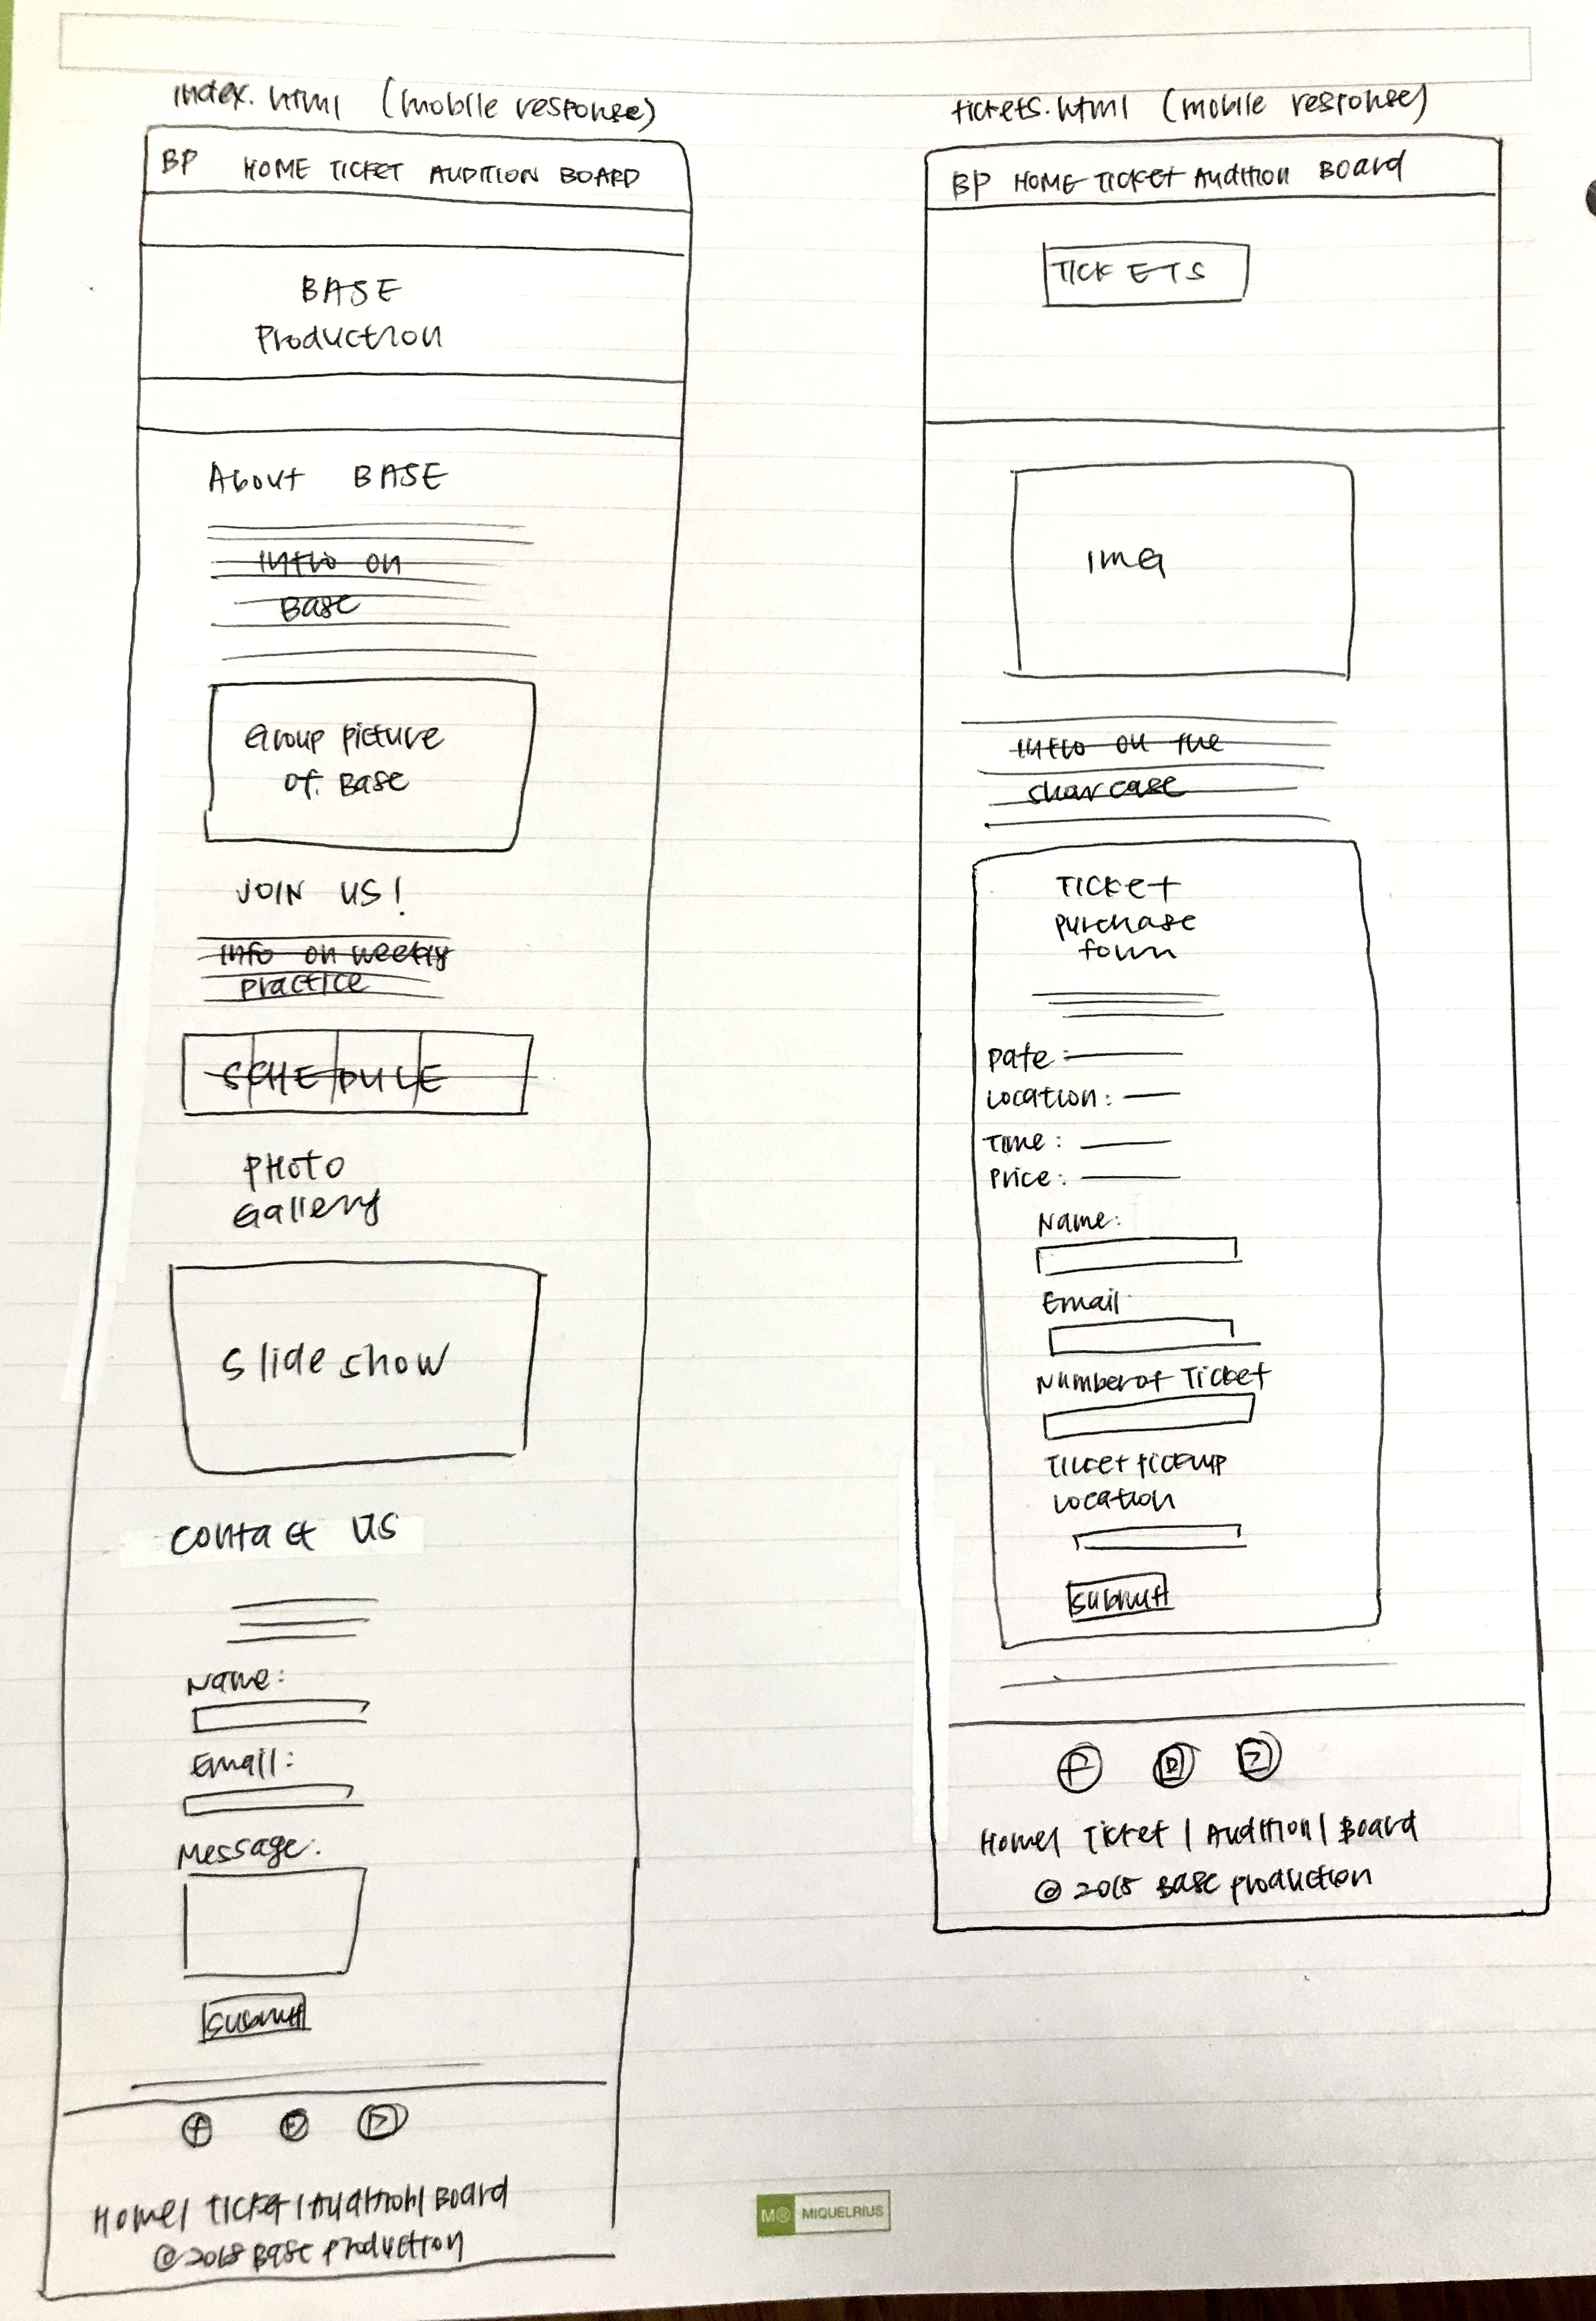 index.html (mobile response)
BP HOME TICKET AUDITION BOARD
BASE
Production
About BASE
Intro on
Base
Group picture
of Base
JOIN US!
Info on weekly
practice
SCHEDULE
PHOTO
Gallery
Slide show
Contact US
Name:
Email:
Message:
Submit
f
Home| Ticket | Audition| Board
© 2018 Base Production
tickets.html (mobile response)
BP HOME TICKET Audition BOARD
TICKETS
IMG
Intro on the
showcase
TICKET
purchase
form
Date:
Location:
Time:
Price:
Name:
Email
Number of Ticket
Ticket Pickup
Location
Submit
f
Home| Ticket | Audition| Board
© 2018 Base production
M® MIQUELRIUS